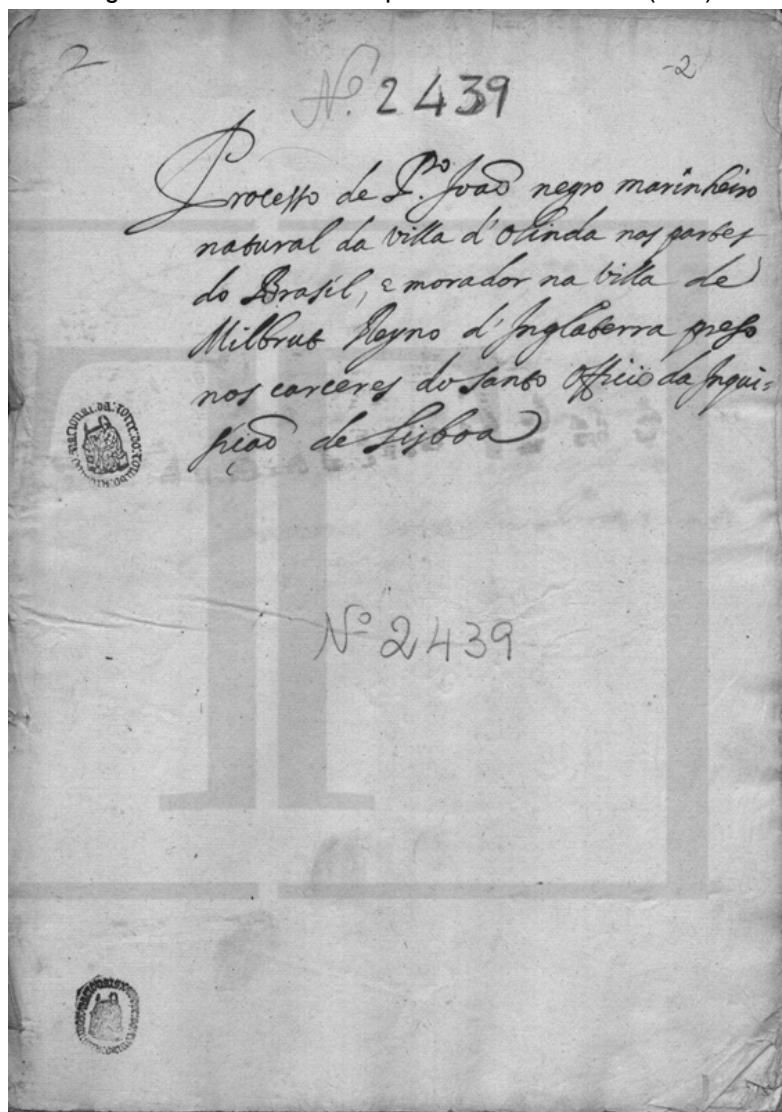 2
-2
Nº 2439
Processo de P.ro João negro marinheiro
natural da villa d'Olinda nas partes
do Brasil, e morador na villa de
Milbrut Reyno d'Inglaterra preso
nos carceres do santo Officio da Inqui=
sição de Lisboa
Nº 2439